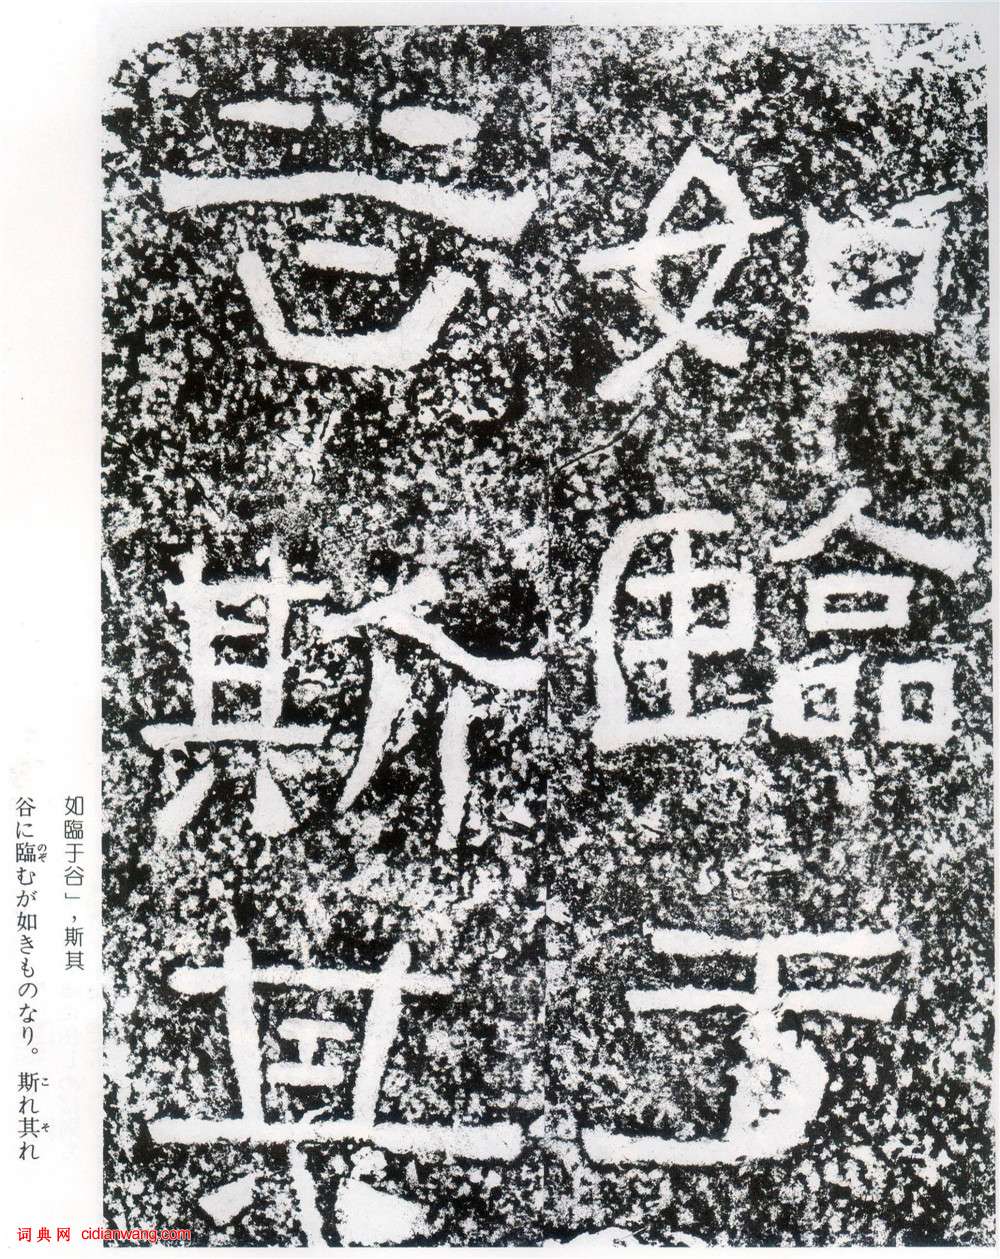 如臨于
谷斯其
如臨于谷」，斯其
谷に臨むが如きものなり。斯れ其れ
のぞ
こ
そ
词典网 cidianwang.com